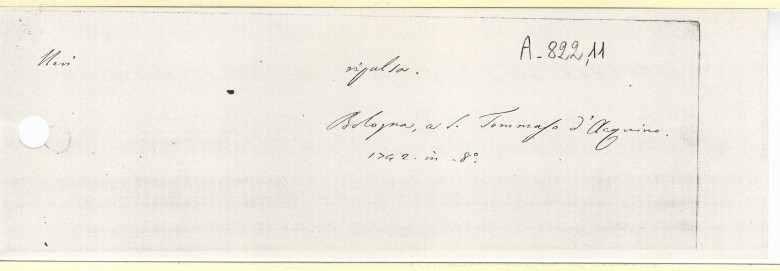 A-822,11
Neri
ripulsa.
Bologna, a S. Tommaso d'Acquino.
1792. in -8°.